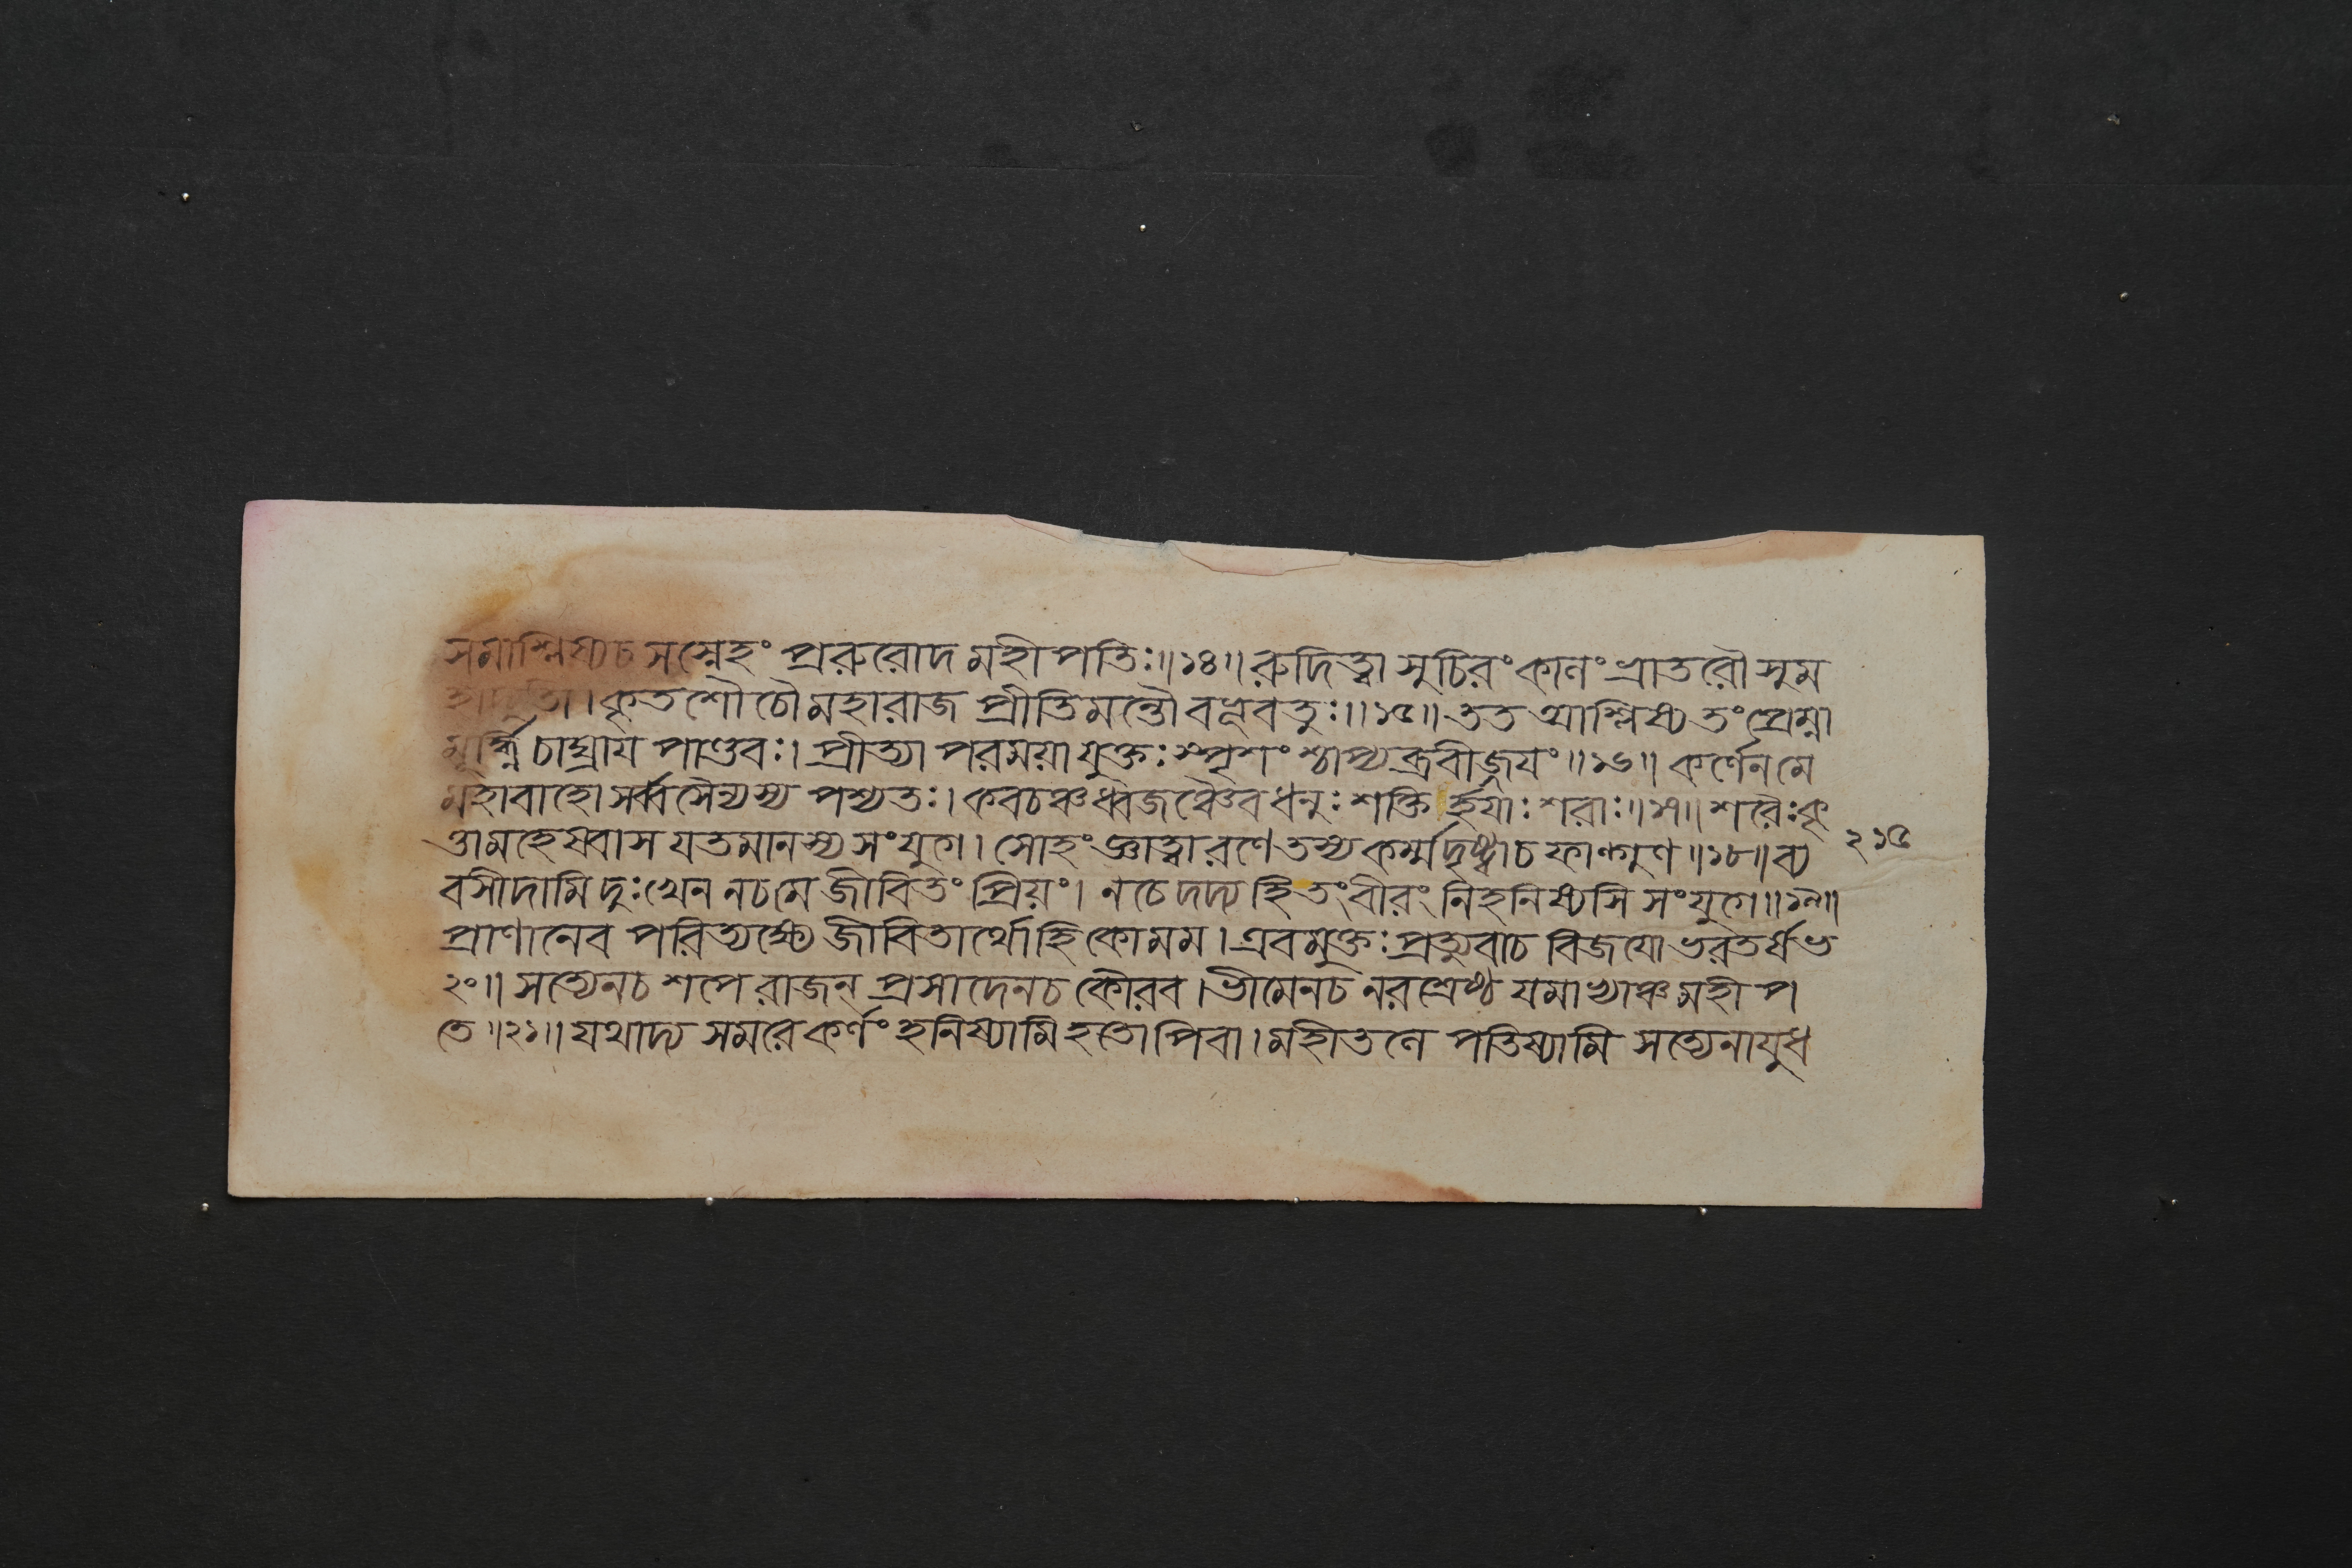 সমাশ্লিষ্যচ সস্নেহং প্ররুরোদ মহীপতিঃ॥১৪॥ রুদিত্বা সুচিরং কালং ভ্রাতরৌ সুম
হাদ্যুতী।কৃতশৌচৌ মহারাজ প্রীতিমন্তৌ বভূবতুঃ॥১৫॥ তত আশ্লিষ্য তং প্রেম্না
মূর্দ্ধ্নি চাঘ্রায পাণ্ডবঃ। প্রীত্যা পরময়া যুক্তঃ স্পৃশংশ্চাপ্যব্রবীজ্জযং॥১৬॥ কর্ণেন মে
মহাবাহো সর্ব্বসৈন্যস্য পশ্যতঃ।কবচঞ্চ ধ্বজঞ্চৈব ধনুঃ শক্তি র্হযাঃ শরাঃ॥১৭॥ শরৈঃ কৃ
ত্তা মহেষ্বাস যতমানস্য সংযুগে। সোহং জ্ঞাত্বা রণে তস্য কর্ম্ম দৃষ্ট্বাচ ফাল্গুণ॥১৮॥ ব্য
২১৫
বসীদামি দুঃখেন নচ মে জীবিতং প্রিয়ং। ন চেদদ্য হি তং বীরং নিহনিষ্যসি সংযুগে॥১৯॥
প্রাণানেব পরিত্যক্ষ্যে জীবিতার্থো হি কো মম। এবমুক্তঃ প্রত্যুবাচ বিজযো ভরতর্ষভ
২০॥ সত্যেনচ শপে রাজন্ প্রসাদেনচ কৌরব।ভীমেনচ নরশ্রেষ্ঠ যমাভ্যাঞ্চ মহীপ
তে॥২১॥ যথাদ্য সমরে কর্ণং হনিষ্যামি হতোপিবা।মহীতলে পতিষ্যামি সত্যেনাযুধ